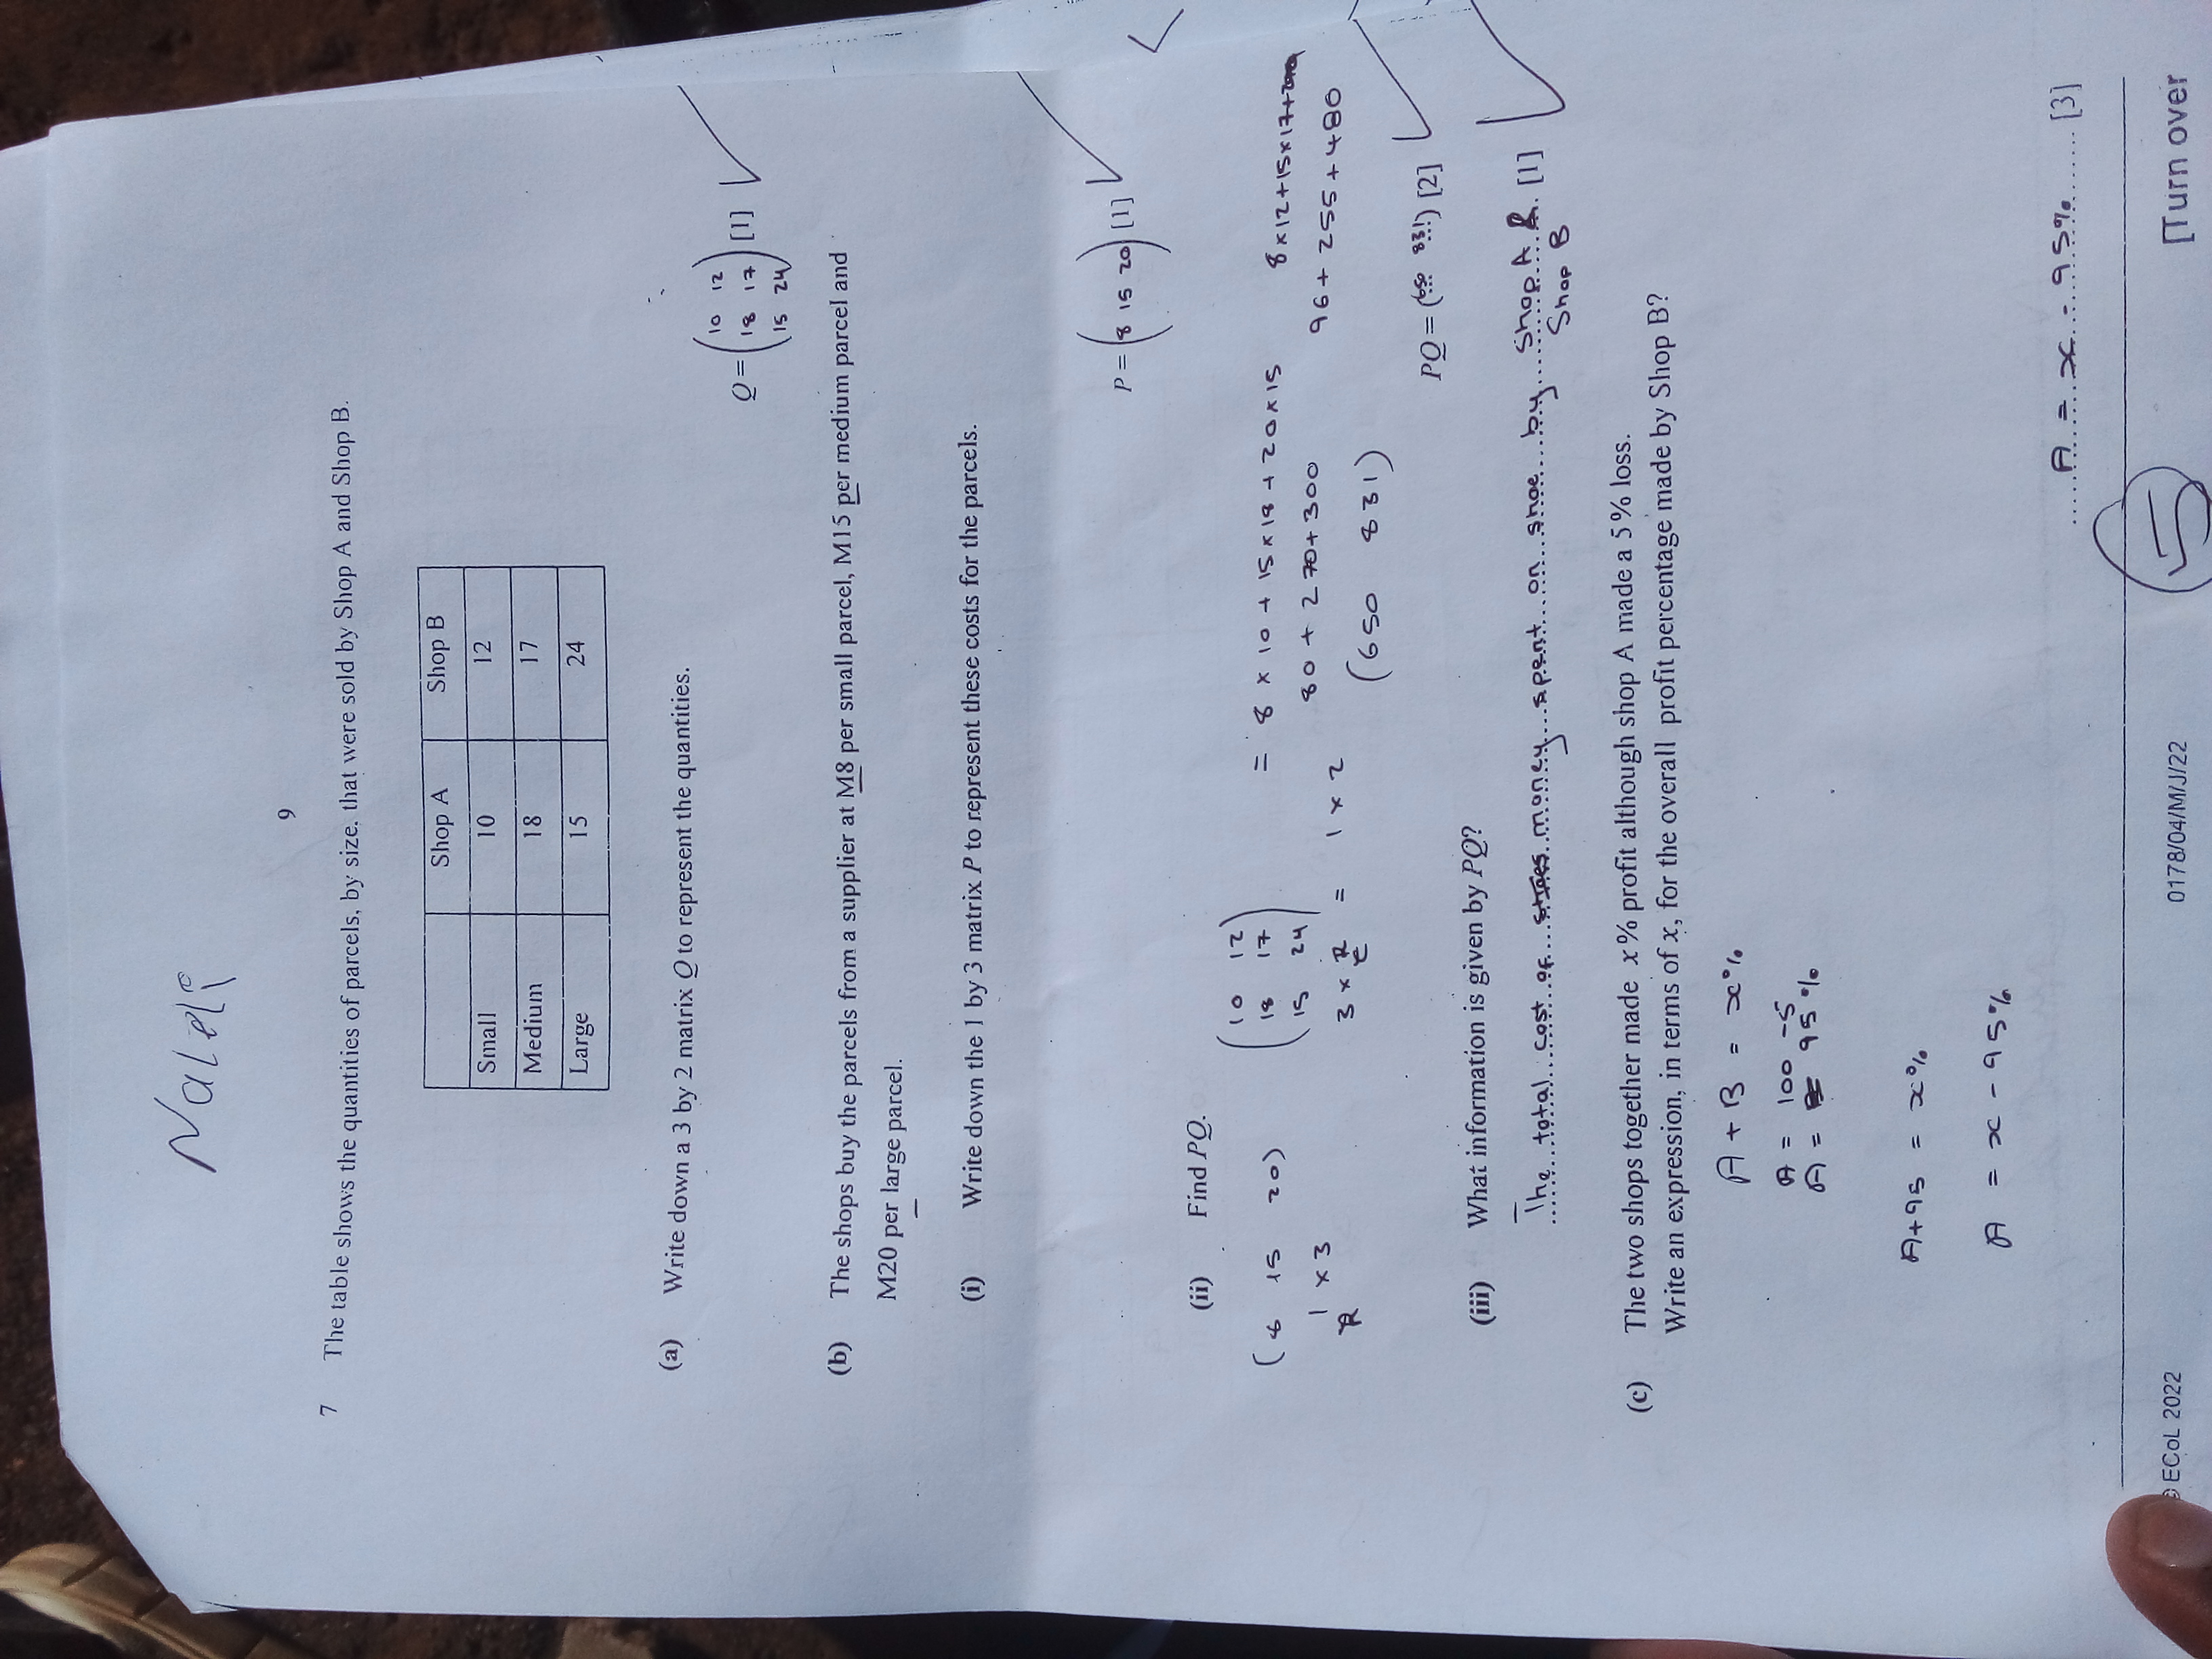 Naledi
9
7 The table shows the quantities of parcels, by size, that were sold by Shop A and Shop B.
Shop A Shop B
Small 10 12
Medium 18 17
Large 15 24
(a) Write down a 3 by 2 matrix Q to represent the quantities.
10 12
Q = 18 17 [1]
15 24
(b) The shops buy the parcels from a supplier at M8 per small parcel, M15 per medium parcel and
M20 per large parcel.
(i) Write down the 1 by 3 matrix P to represent these costs for the parcels.
P = (8 15 20) [1]
(ii) Find PQ.
(8 15 20) 10 12 = 8 × 10 + 15 × 18 + 20 × 15 8 × 12 + 15 × 17 +
18 17
15 24 80 + 270 + 300 96 + 255 + 480
1 × 3 3 × 2 = 1 × 2
R C
(650 831)
PQ = (650 831) [2]
(iii) What information is given by PQ?
The total cost of shoes money spent on shoe by Shop A & [1]
Shop B
(c) The two shops together made x% profit although shop A made a 5% loss.
Write an expression, in terms of x, for the overall profit percentage made by Shop B?
A + B = x%
A = 100 - 5
A = 95%
A + 95 = x%
A = x - 95%
A = x - 95% [3]
5
© ECoL 2022 0178/04/M/J/22 [Turn over